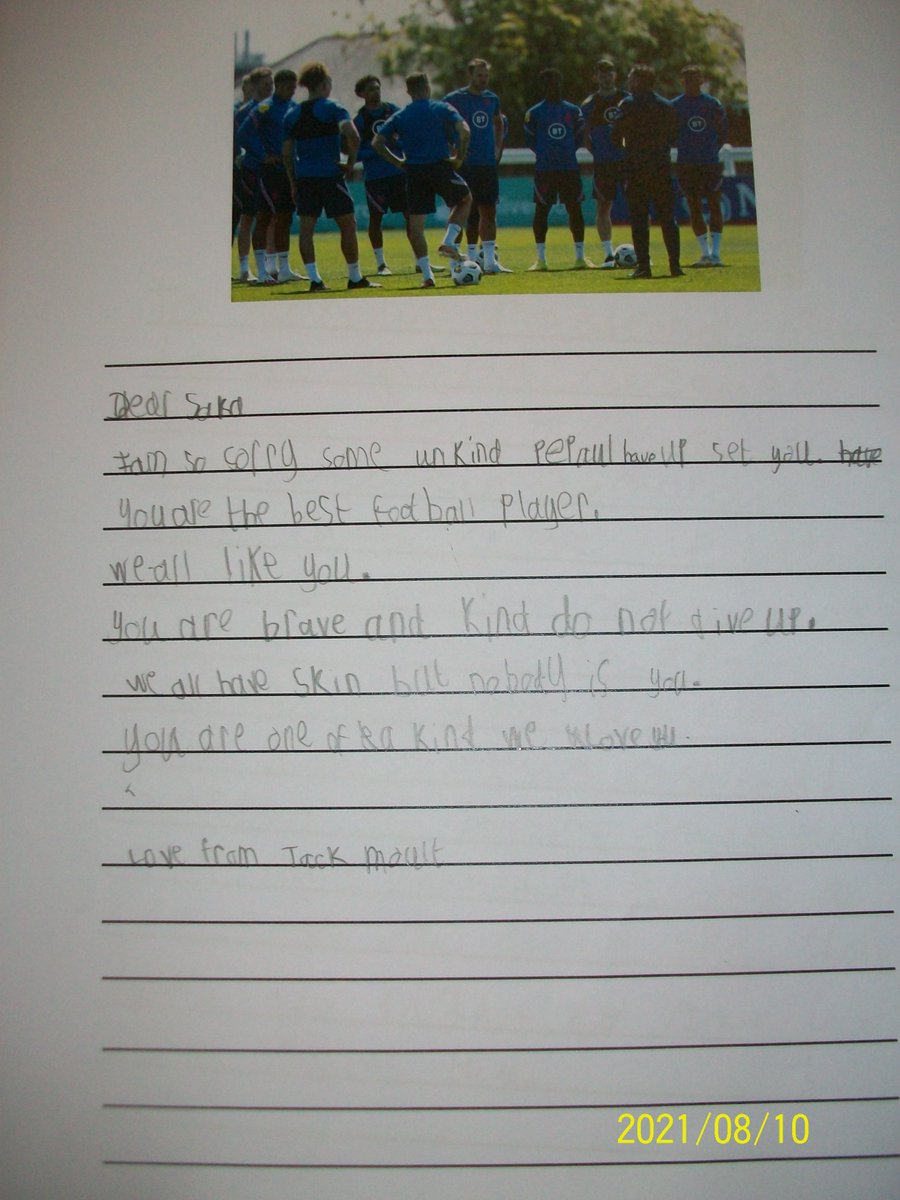 BT
BT
BT
BT
ON
Dear Saka
I am so sorry some unkind pepaul have up set you. have
you are the best football player.
we all like you.
you are brave and kind do not give up.
we all have skin but nobody is you.
you are one of a kind we love u.
Love from Jack moult
2021/08/10